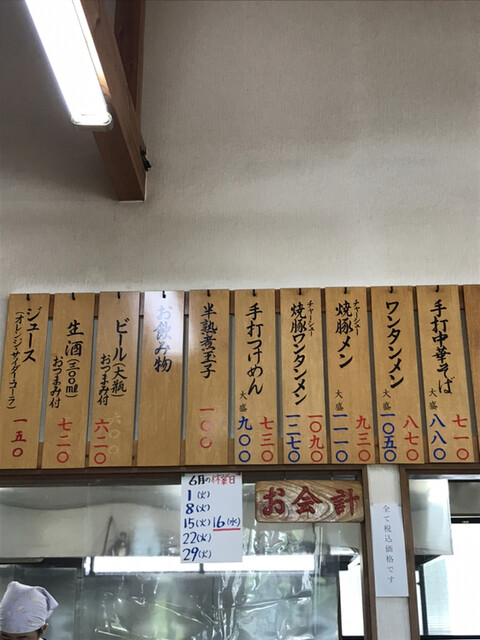 手打中華そば 七一〇
大盛 八八〇
ワンタンメン 八七〇
大盛 一〇五〇
チャーシュー
焼豚メン 九三〇
大盛 一一一〇
チャーシュー
焼豚ワンタンメン 一〇九〇
一二七〇
手打つけめん 七三〇
大盛 九〇〇
半熟煮玉子 一〇〇
お飲み物
ビール(大瓶) 六二〇
おつまみ付
生酒(三〇〇ml) 七二〇
おつまみ付
ジュース 一五〇
(オレンジ・サイダー・コーラ)
6月の休業日
1(火)
8(火)
15(火)16(水)
22(火)
29(火)
お会計
全て税込価格です